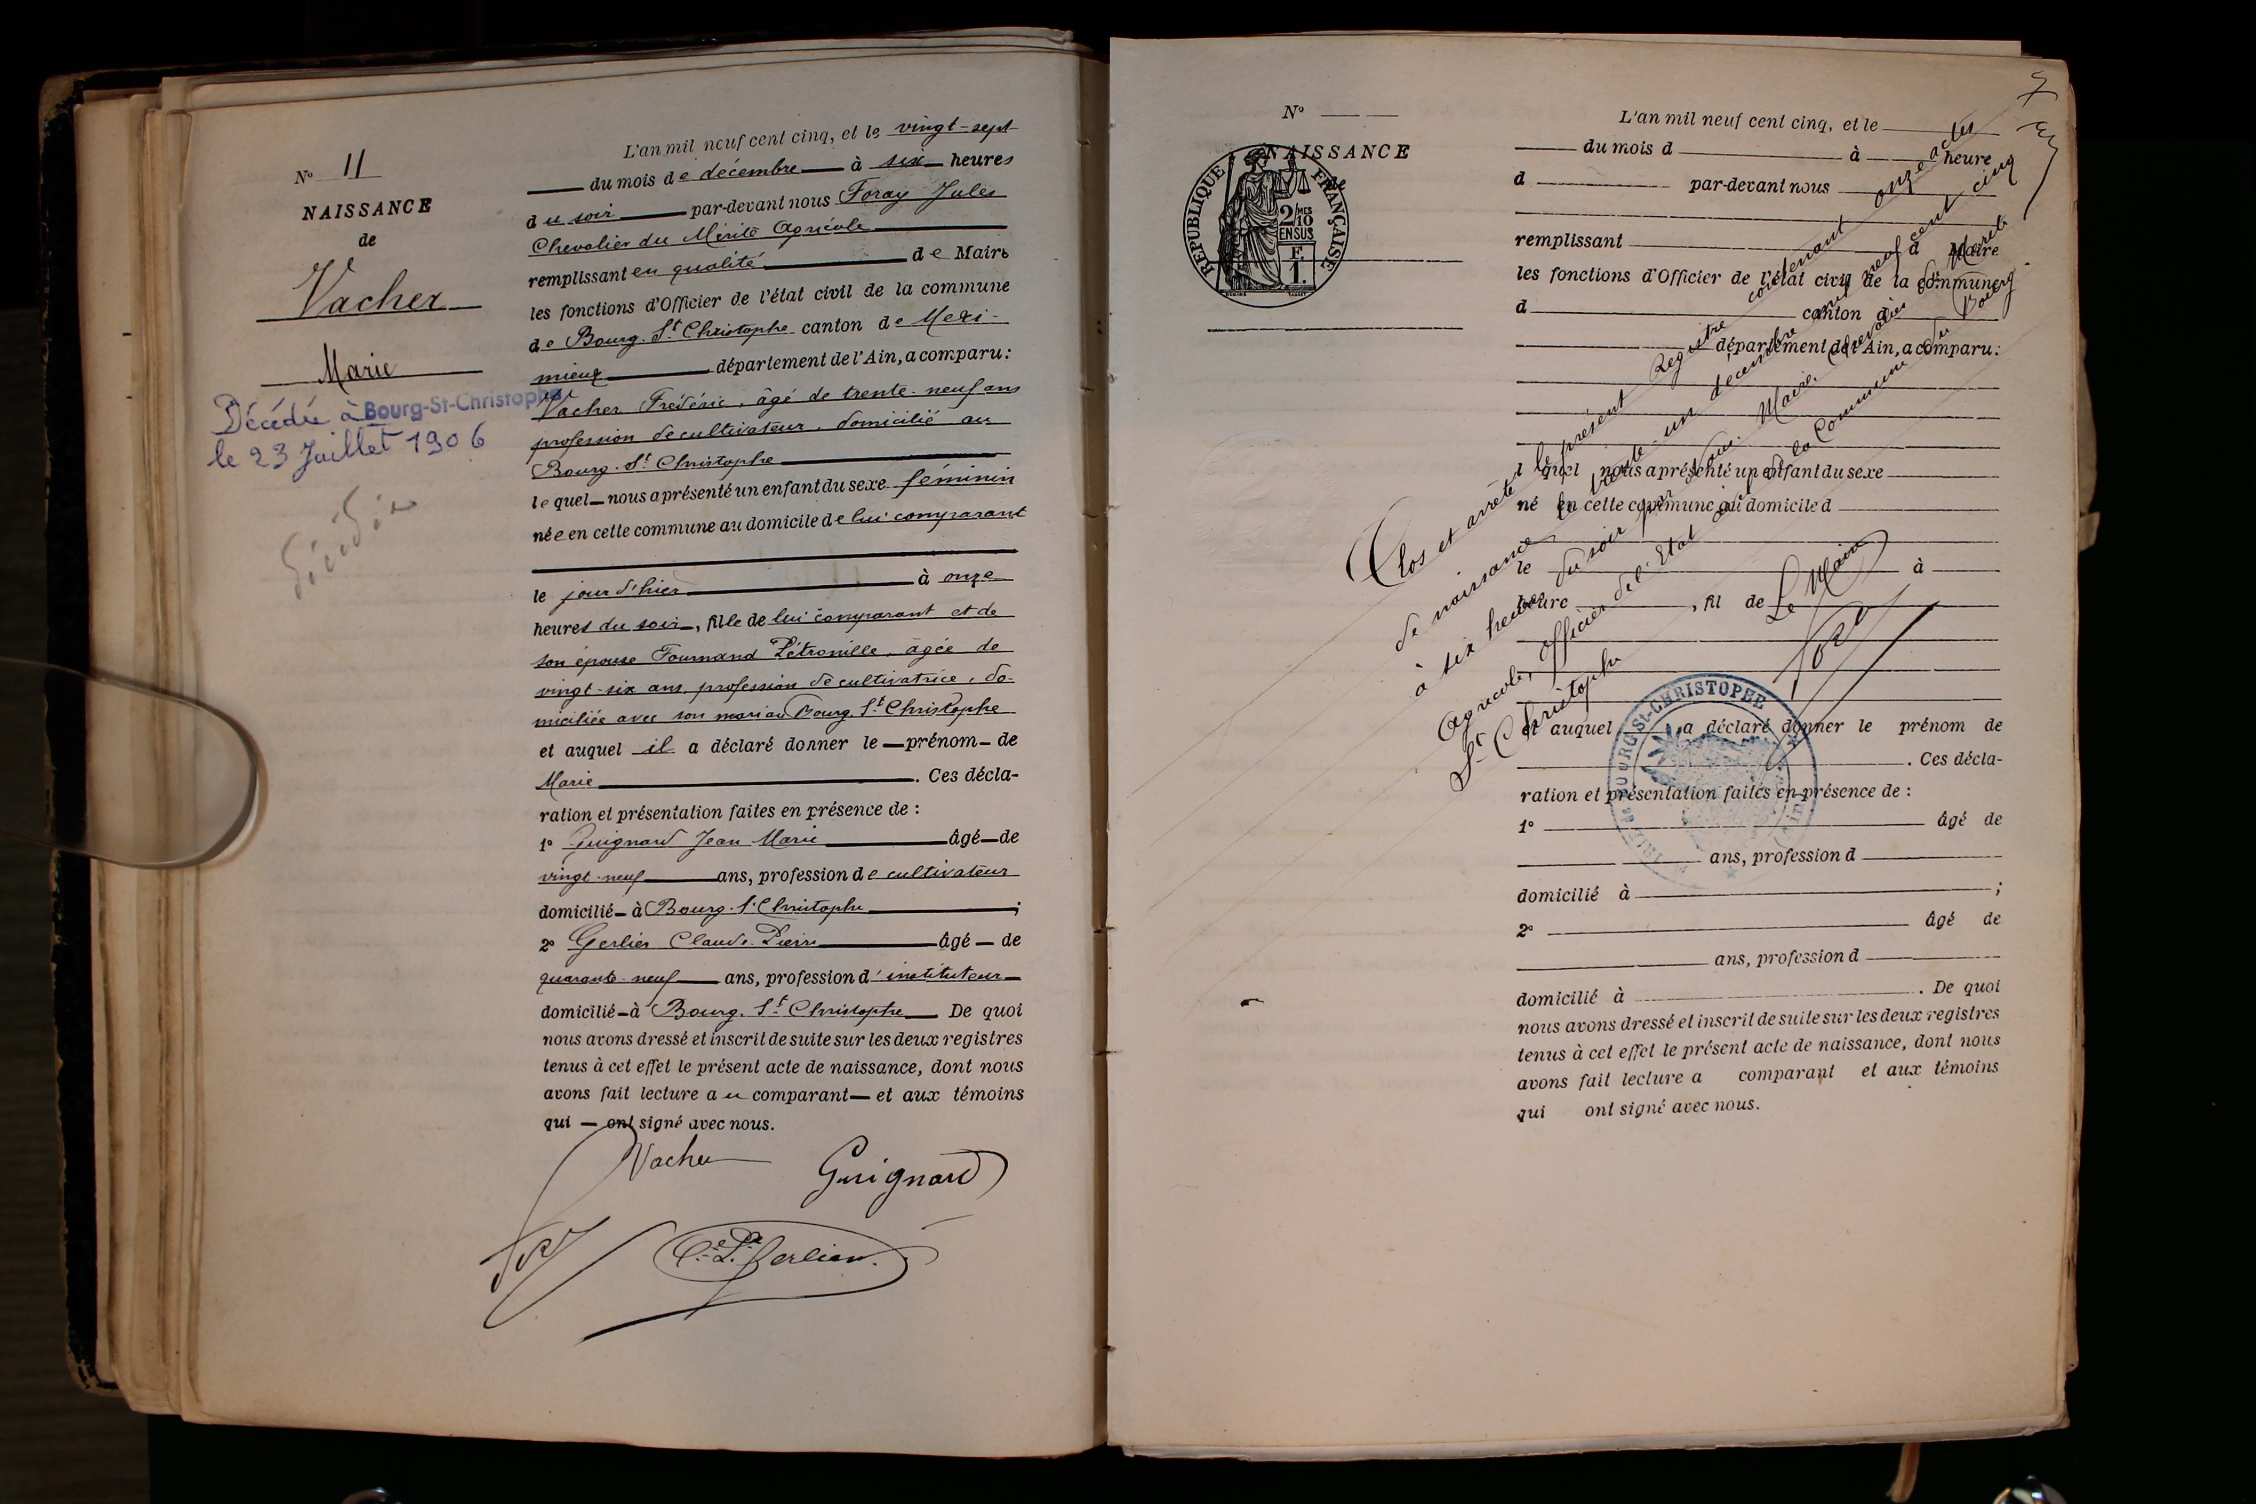 N° 11
NAISSANCE
de
Vacher
Marie
Décédée à Bourg-St-Christophe
le 23 Juillet 1906
L'an mil neuf cent cinq, et le vingt-sept
du mois de décembre à six heures
du soir par-devant nous Foray Jules
Chevalier du Mérite Agricole
remplissant en qualité de Maire
les fonctions d'Officier de l'état civil de la commune
de Bourg-St Christophe canton de Mexi-
mieux département de l'Ain, a comparu :
Vacher Frédéric, âgé de trente-neuf ans
profession de cultivateur, domicilié au
Bourg-St Christophe
lequel nous a présenté un enfant du sexe féminin
née en cette commune au domicile de lui comparant
le jour d'hier à onze
heures du soir, fille de lui comparant et de
son épouse Fournand Pétronille, âgée de
vingt-six ans, profession de cultivatrice, do-
miciliée avec son mari au Bourg-St Christophe
et auquel il a déclaré donner le prénom de
Marie. Ces décla-
ration et présentation faites en présence de :
1° Guignard Jean Marie âgé de
vingt-neuf ans, profession de cultivateur
domicilié à Bourg-St Christophe ;
2° Gerlier Claude Pierre âgé de
quarante-neuf ans, profession d'instituteur
domicilié à Bourg-St Christophe De quoi
nous avons dressé et inscrit de suite sur les deux registres
tenus à cet effet le présent acte de naissance, dont nous
avons fait lecture au comparant et aux témoins
qui ont signé avec nous.
Vacher
Guignard
Foray
Cde Pre Gerlier
N°
NAISSANCE
de
RÉPUBLIQUE FRANÇAISE
2/10 MES
EN SUS
1 F.
L'an mil neuf cent cinq, et le
du mois d à heure
d par-devant nous
remplissant d Maire
les fonctions d'Officier de l'état civil de la commune
d canton d
département de l'Ain, a comparu :
l quel nous a présenté un enfant du sexe
né en cette commune au domicile d
le à
heure , fil de
et auquel a déclaré donner le prénom de
. Ces décla-
ration et présentation faites en présence de :
1° âgé de
ans, profession d
domicilié à ;
2° âgé de
ans, profession d
domicilié à . De quoi
nous avons dressé et inscrit de suite sur les deux registres
tenus à cet effet le présent acte de naissance, dont nous
avons fait lecture a comparant et aux témoins
qui ont signé avec nous.
Clos et arrêté le présent Registre contenant onze actes
de naissance le trente-un décembre mil neuf cent cinq
à six heures du soir par nous Maire, Chevalier du Mérite
Agricole, Officier de l'Etat civil de la Commune du Bourg
St Christophe
Le Maire
Foray
BOURG-St-CHRISTOPHE